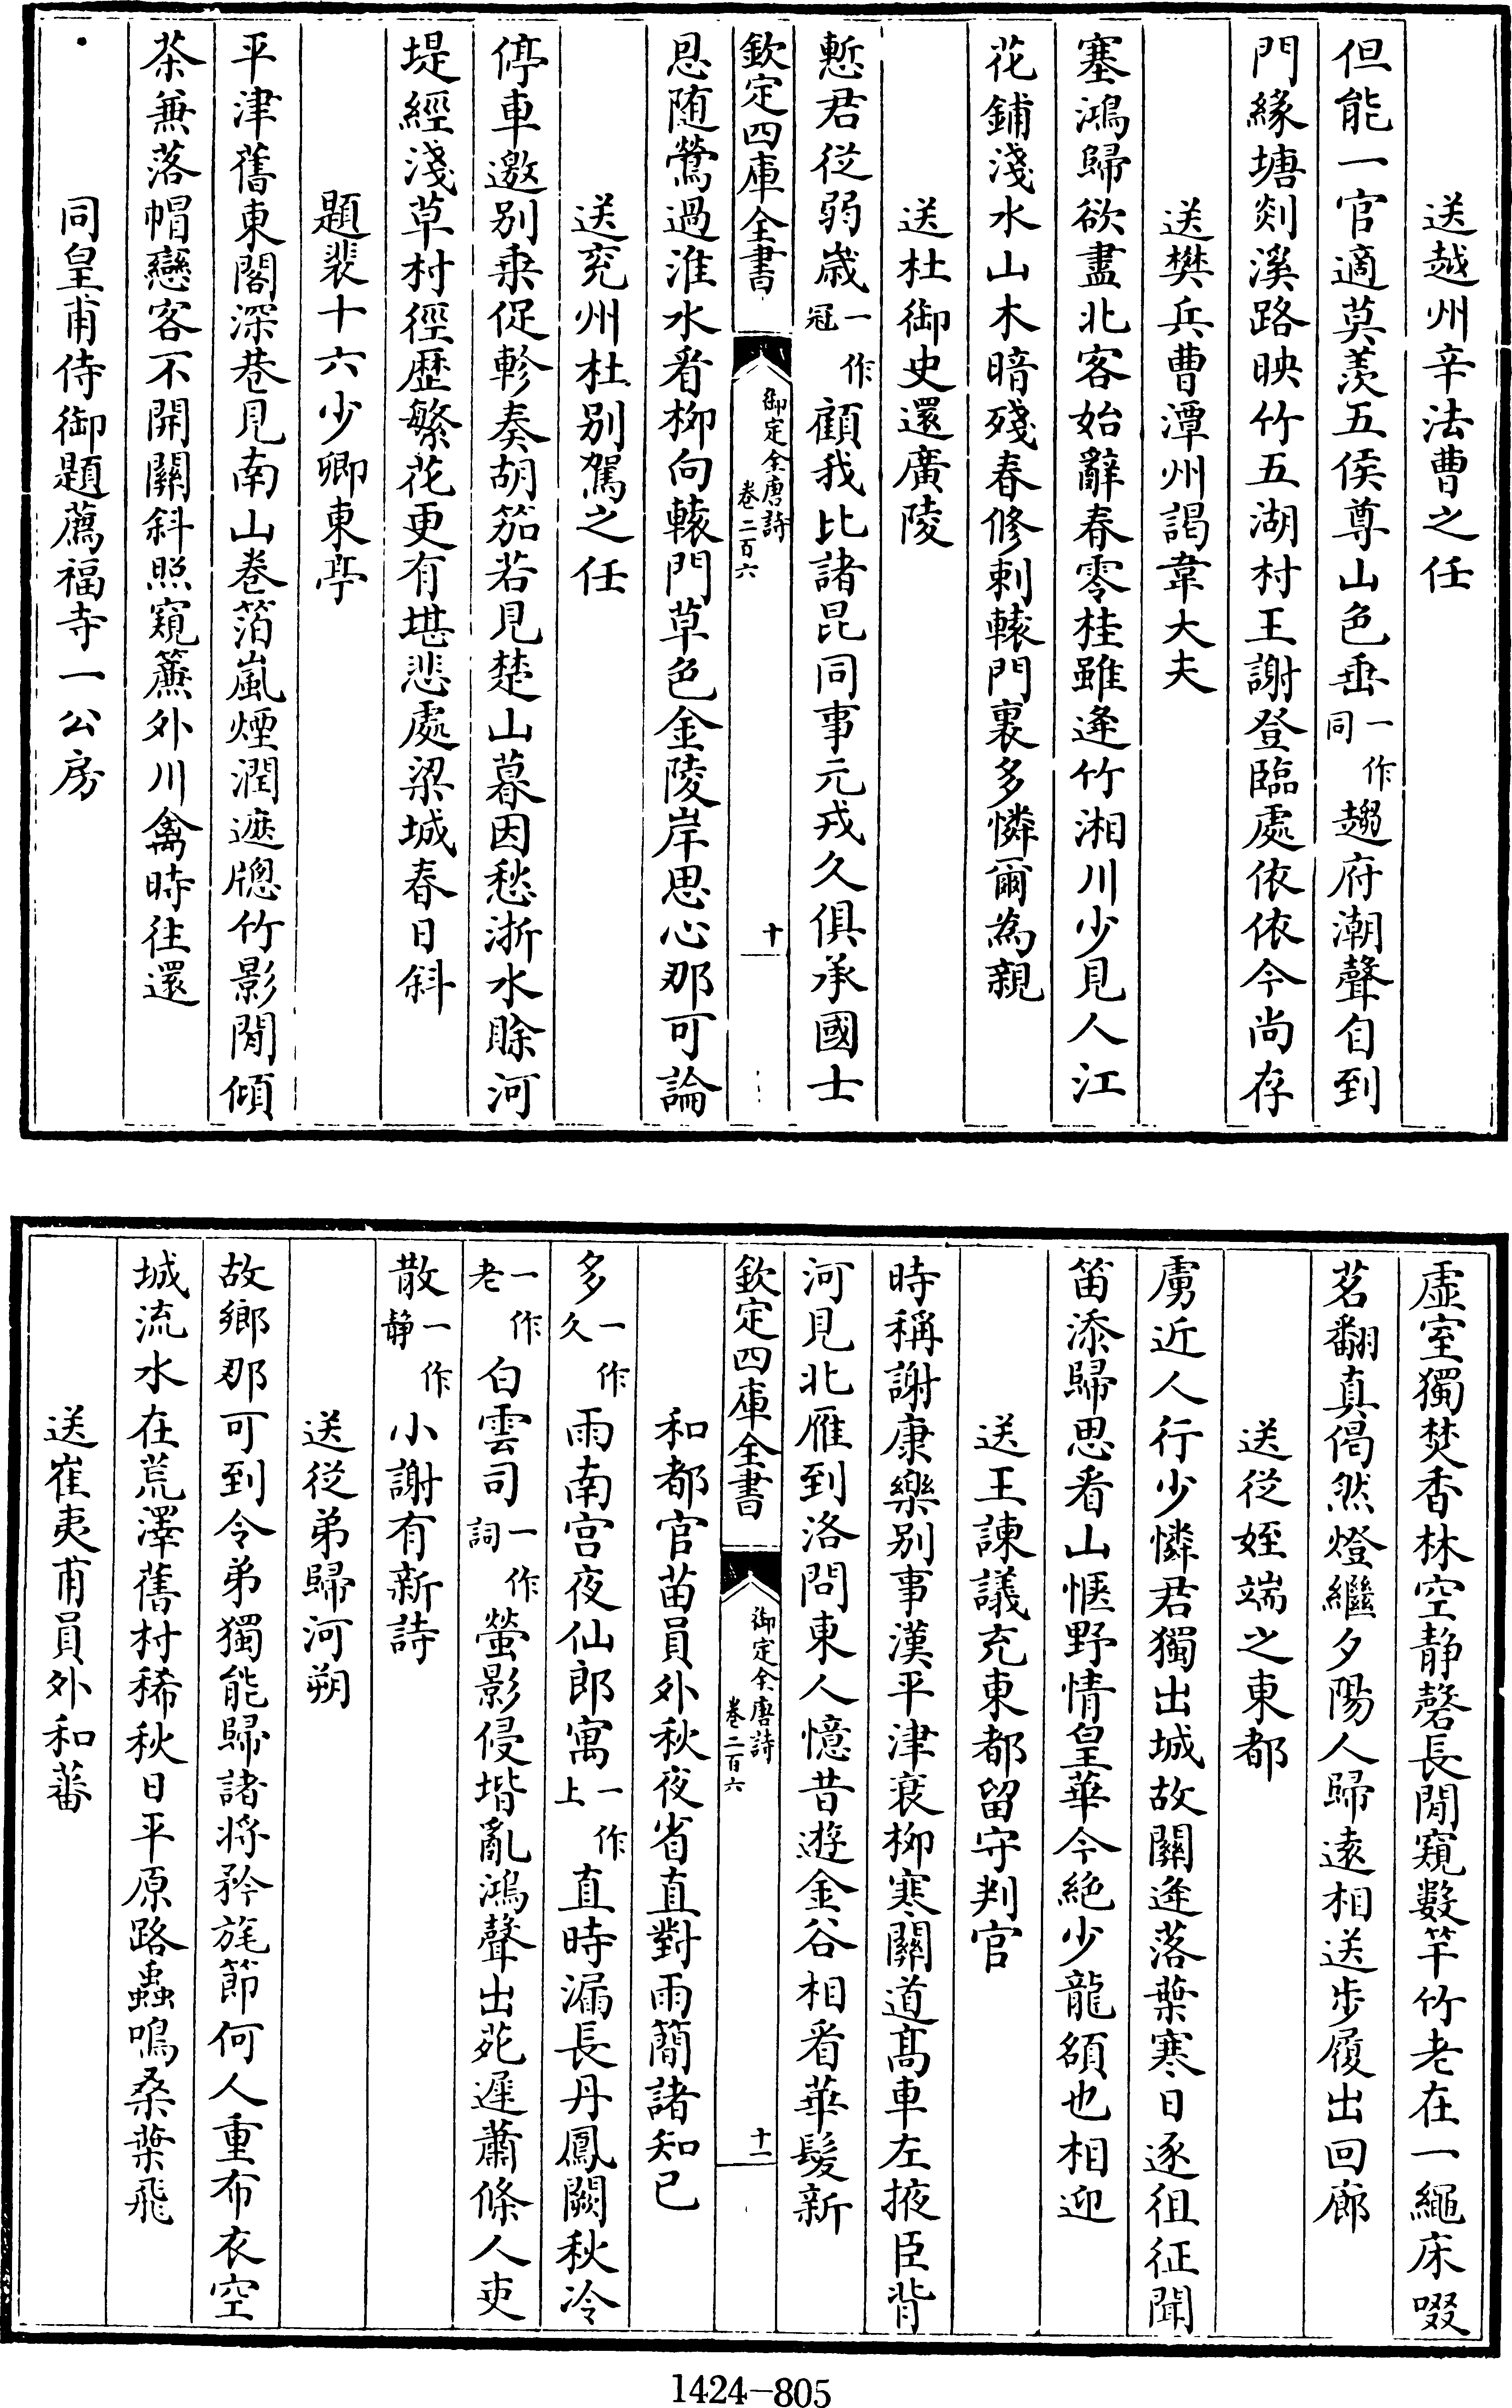 送越州辛法曹之任
但能一官適莫羨五侯尊山色垂一作同趨府潮聲自到
門緣塘剡溪路映竹五湖村王謝登臨處依依今尚存
送樊兵曹潭州謁韋大夫
塞鴻歸欲盡北客始辭春零桂雖逢竹湘川少見人江
花鋪淺水山木暗殘春修刺轅門裏多憐爾為親
送杜御史還廣陵
慙君從弱歲一作冠顧我比諸昆同事元戎久俱承國士
欽定四庫全書 御定全唐詩 卷二百六 十
恩随鶯過淮水看柳向轅門草色金陵岸思心那可論
送兖州杜别駕之任
停車邀别乗促軫奏胡笳若見楚山暮因愁浙水賒河
堤經淺草村徑歷繁花更有堪悲處梁城春日斜
題裴十六少卿東亭
平津舊東閣深巷見南山卷箔嵐煙潤遮牕竹影閒傾
茶兼落帽戀客不開關斜照窺簾外川禽時往還
同皇甫侍御題薦福寺一公房
虛室獨焚香林空静磬長閒窺數竿竹老在一繩床啜
茗翻真偈然燈繼夕陽人歸遠相送步履出回廊
送從姪端之東都
虜近人行少憐君獨出城故關逢落葉寒日逐徂征聞
笛添歸思看山愜野情皇華今絕少龍頟也相迎
送王諫議充東都留守判官
時稱謝康樂别事漢平津衰柳寒關道髙車左掖臣背
河見北雁到洛問東人憶昔遊金谷相看華髮新
欽定四庫全書 御定全唐詩 卷二百六 十一
和都官苗員外秋夜省直對雨簡諸知已
多一作久雨南宮夜仙郎寓一作上直時漏長丹鳳闕秋冷
一作老白雲司一作詞螢影侵堦亂鴻聲出苑遲蕭條人吏
散一作静小謝有新詩
送從弟歸河朔
故鄉那可到令弟獨能歸諸将矜旄節何人重布衣空
城流水在荒澤舊村稀秋日平原路蟲鳴桑葉飛
送崔夷甫員外和蕃
1424-805